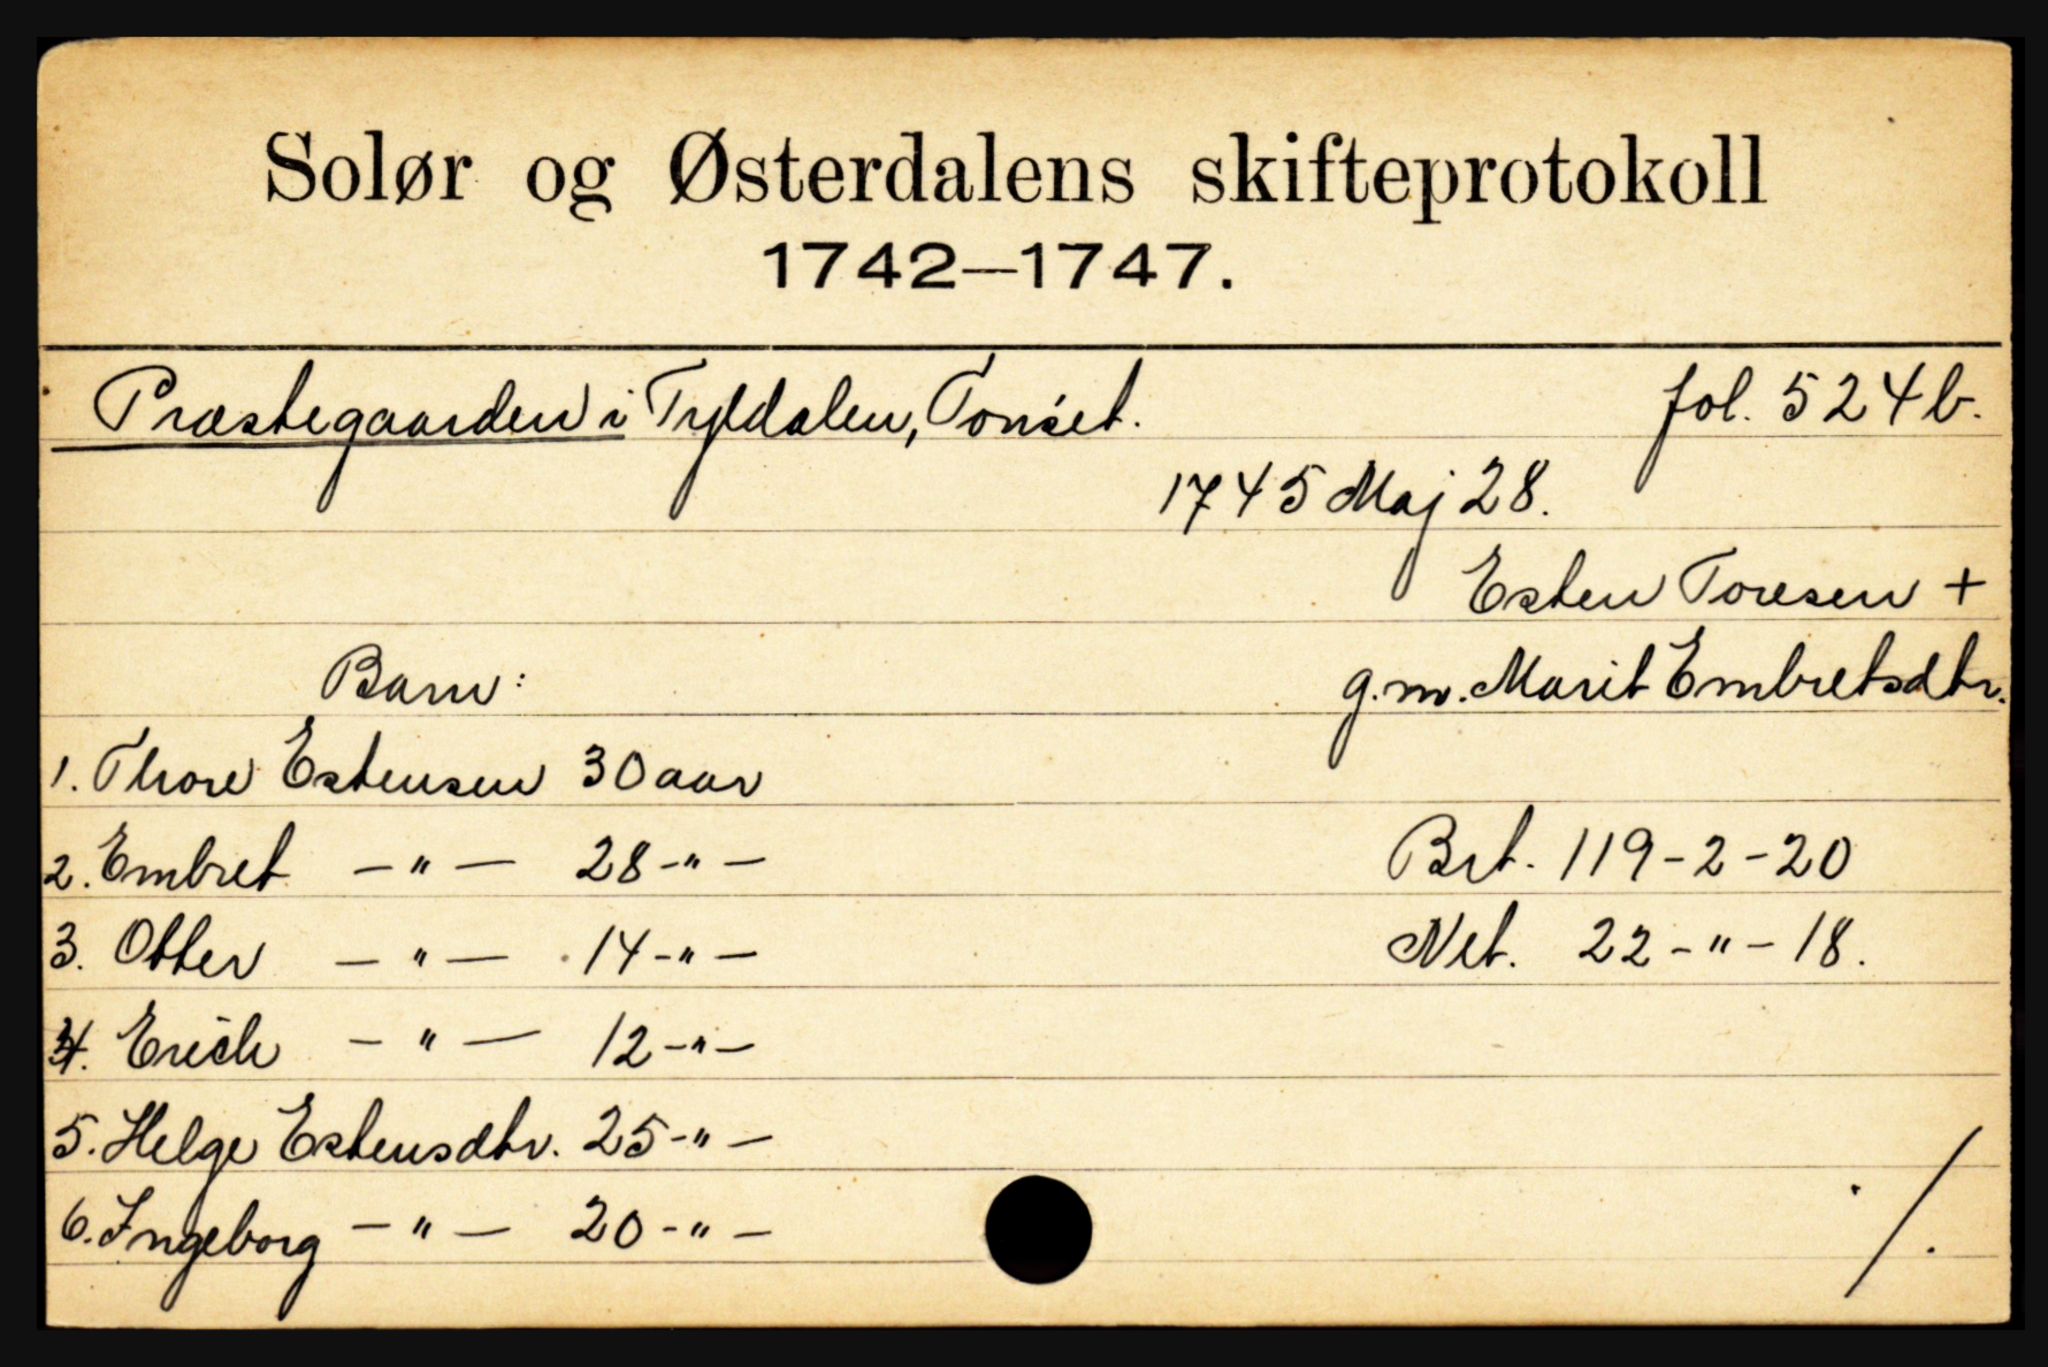 Solør og Østerdalens skifteprotokoll
1742—1747.
Præstegaarden i Tyldalen, Tonset. fol. 524b.
1745 Maj 28.
Esten Toresen +
Barn: g.m. Marit Embretsdtr.
1. Thore Estensen 30 aar
2. Embret — " — 28 - " — Brt. 119 - 2 - 20
3. Otter — " — 14 - " — Net. 22 - " - 18.
4. Erich — " — 12 - " —
5. Helge Estensdtr. 25 - " —
6. Ingeborg — " — 20 - " —
./.